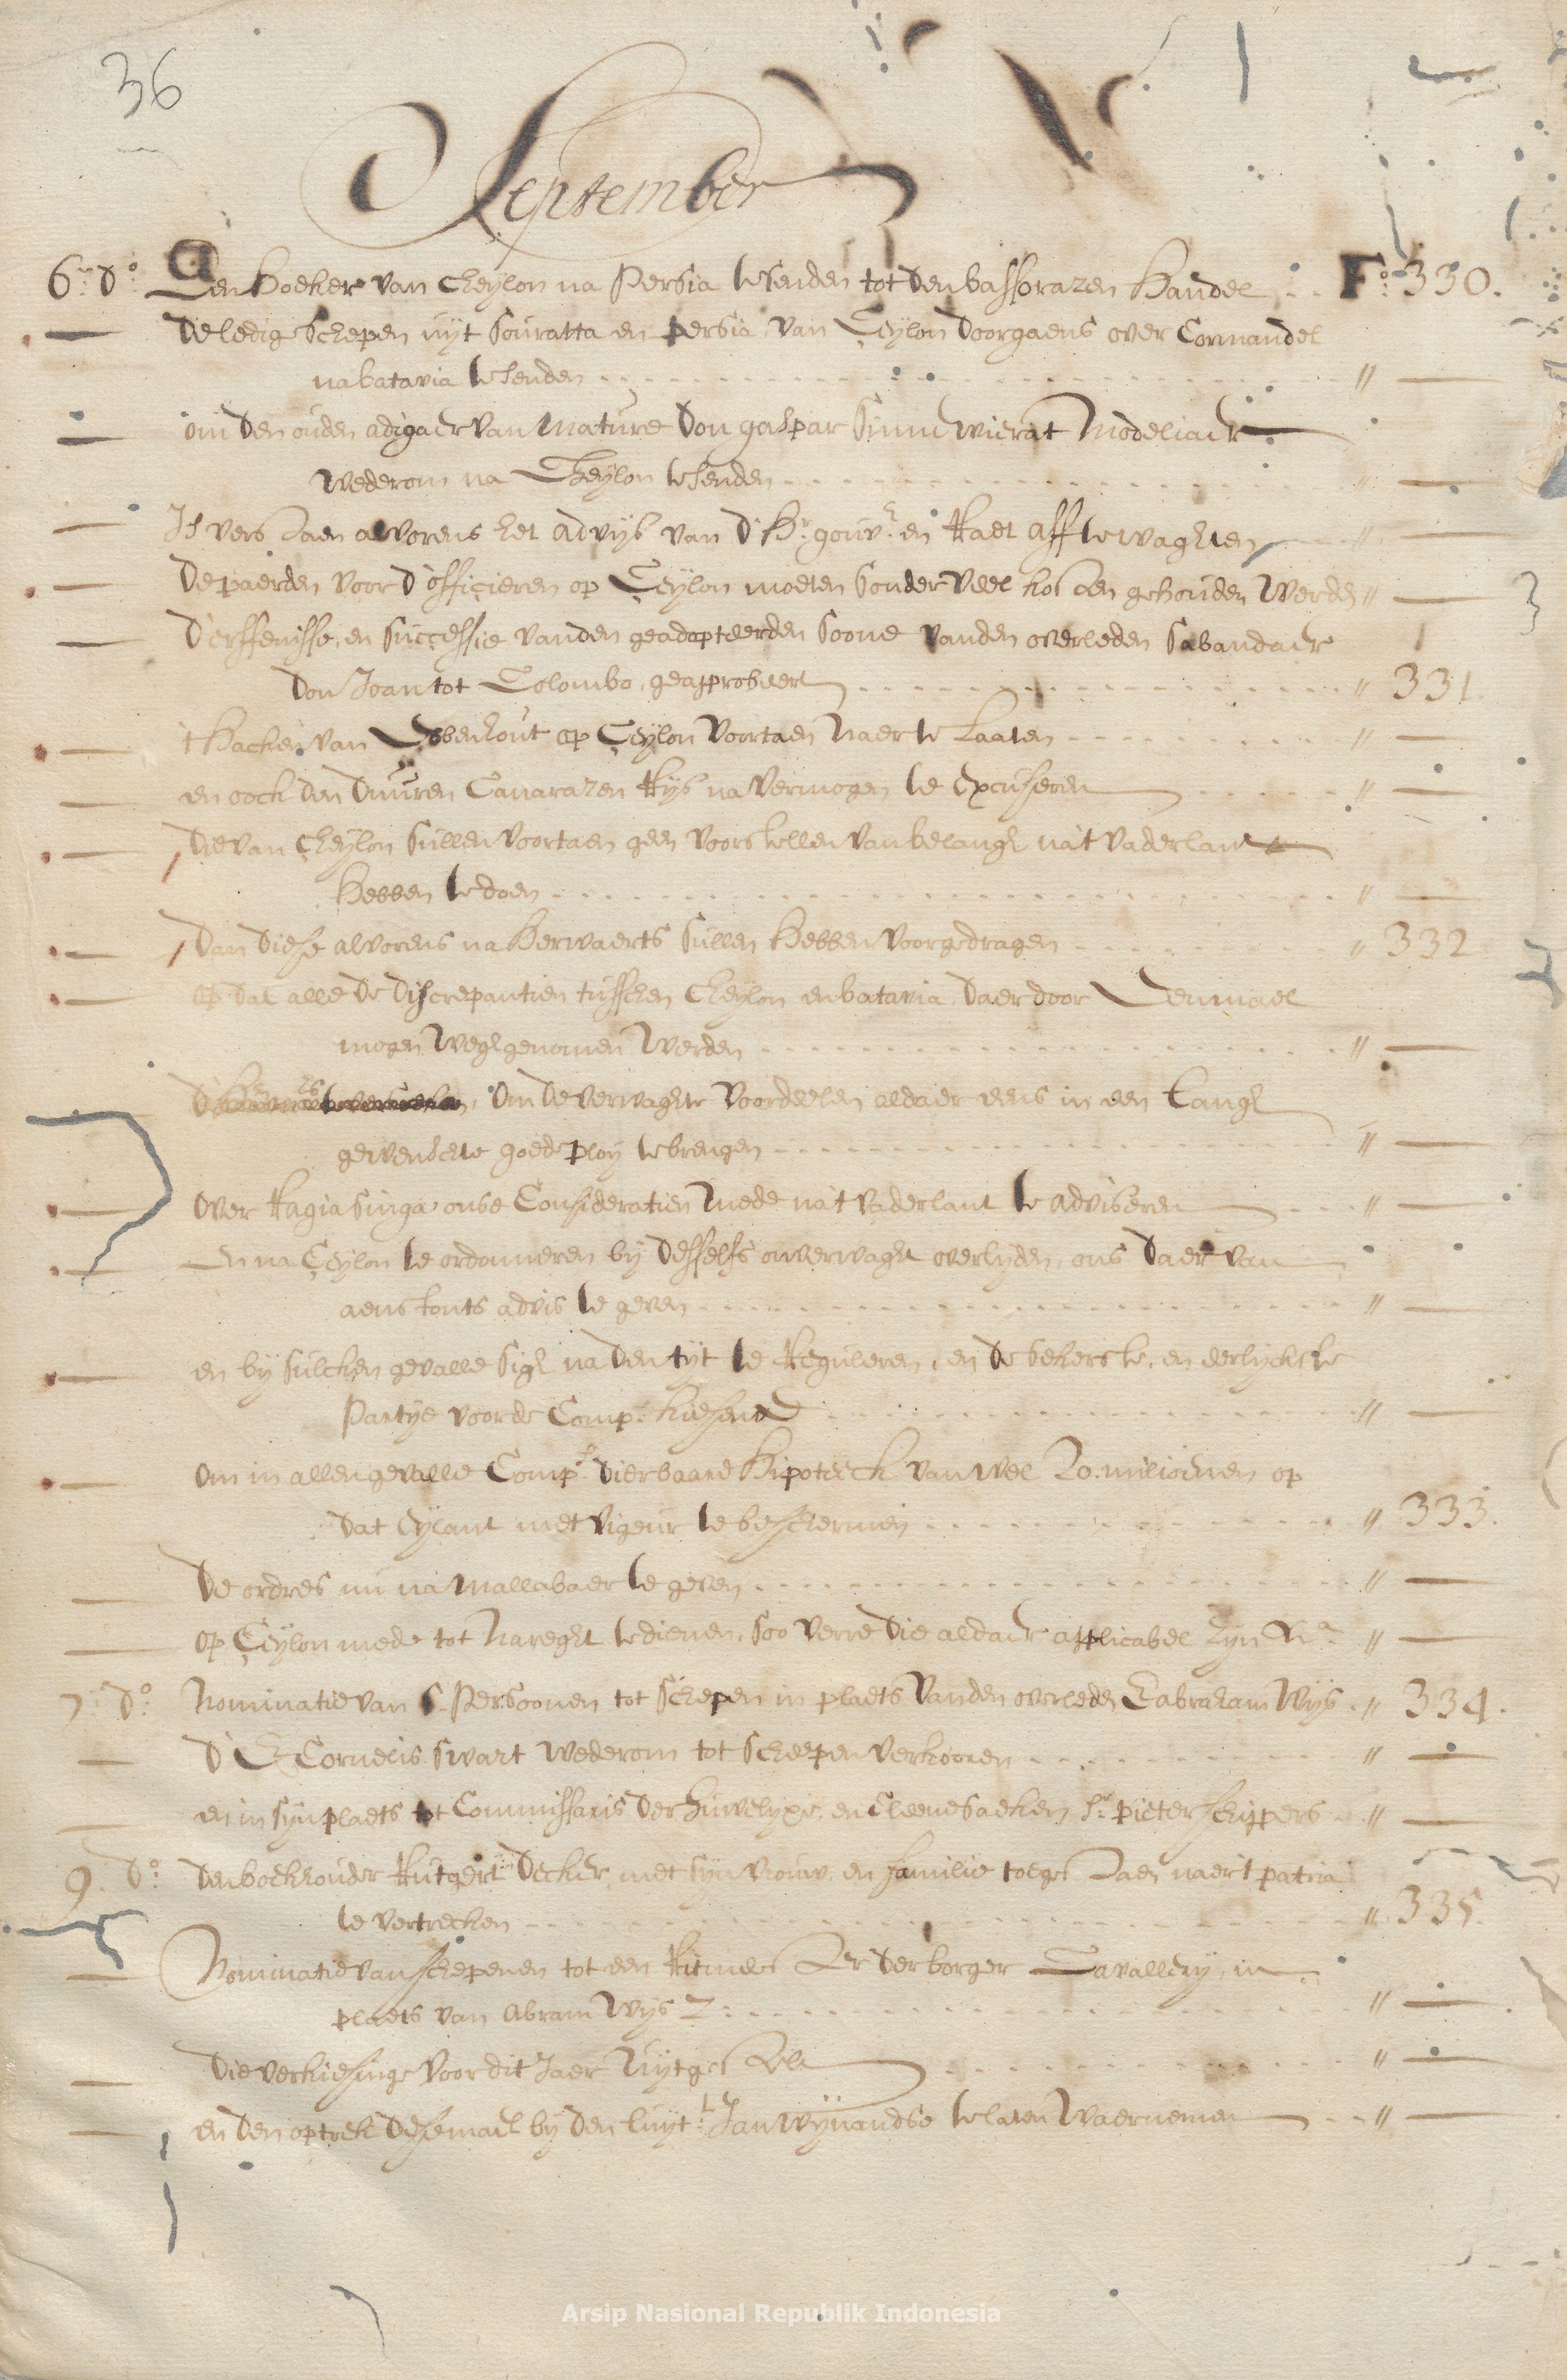 36
September
6.en d.o Een hoeker van Cheylon na Persia te senden tot den bassorazen handel F.o 330.
De ledige schepen uyt Souratta en persia, van Ceylon doorgaens over Cormandel
na batavia te senden "
om den ouden adigaer van Mature Don gaspar Modeliaer
wederom na Cheylon te senden "
Is verstaen alvorens het advijs van d'hr. gouvr. en Raet aff te waghten "
De paerden voor d'officieren op Ceylon moeten sonder veel kosten gehouden werden "
D'erffenisse, en successie vanden geadopteerden soone vanden overleden Sabandaer
don Joan tot Colombo, geapprobeert " 331.
't hacken van Ebbenhout op Ceylon voortaen naer te laaten "
en oock den duuren Canarazen Rijs na vermogen te excuseren "
die van Cheylon sullen voortaen geen voorstellen van belangh na't vaderlant
hebben te doen "
dan diese alvorens na herwaerts sullen hebben voorgedragen " 332
op dat alle de discrepantien tusschen Cheylon en batavia, daer door Eenmael
mogen wegh genomen werden "
om de verwaghte voordeelen aldaer eens in een langh
gewenschte goede ploy te brengen "
over Ragia singa onse Consideratien mede na't vaderlant te adviseren "
En na Ceylon te ordonneren by desselfs onverwaght overlyden, ons daer van
aenstonts advis te geven "
en bij sulcken gevalle sigh na den tijt te Reguleren, en de sekerste, en eerlyckste
Partye voor de Comp.e kiesend "
om in allen gevalle Comp.s dierbaare hipoteeck van wel 20. milioenen op
dat eylant met vigeur te beschermen " 333.
De ordres nu na Mallabaer te geven "
op Ceylon mede tot nareght te dienen, soo verre die aldaer applicabel zyn "
7.en d.o Nominatie van 6. Persoonen tot schepen in plaets vanden overleden E abraham Wijs " 334.
d'E Cornelis Swart wederom tot scheepen verkooren "
en in syn plaets tot Commissaris der huwelyxe, en Cleene saeken Sr. pieter schippers "
9. d.o den boekhouder Rutgert Decker, met syn vrouw, en familie toegestaen naer't patria
te vertrecken " 335.
Nominatie van schepenen tot een Ritmeester der borger Cavallery, in
plaets van Abram Wijs "
die verkiesinge voor dit Jaer uytgestelt "
en den optrek desemael by den luyt.t Jan Wynandse te laten waernemen "
Arsip Nasional Republik Indonesia